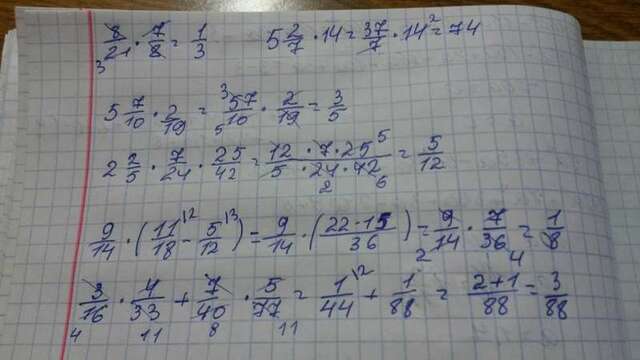 8/21 · 7/8 = 1/3    5 2/7 · 14 = 37/7 · 14² = 74
3
5 7/10 · 2/19 = ³57/10 · 2/19 = 3/5
5
2 2/5 · 7/24 · 25/42 = 12 · 7 · 25⁵ / 5 · 24 · 72 = 5/12
2 6
9/14 · (11/18 ¹² - 5/12 ¹³) = 9/14 · (22-15/36) = 9/14 · 7/36 = 1/8
2 4
3/16 · 4/33 + 7/40 · 5/77 = 1/44 ¹² + 1/88 = 2+1/88 = 3/88
4 11 8 11